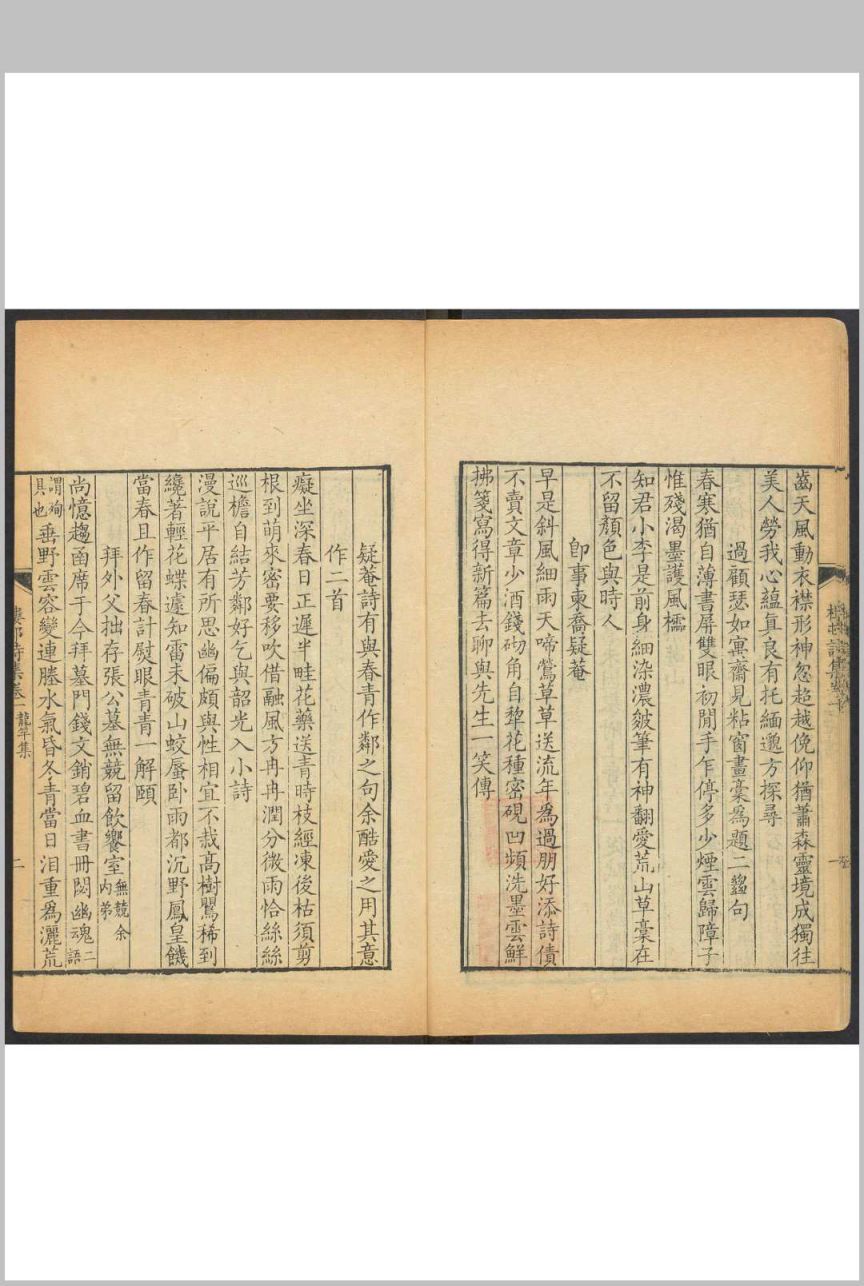 齒天風動衣襟形神忽超越俛仰猶蕭森靈境成獨往
美人勞我心蘊真良有托緬邈方探尋
過顧瑟如寓齋見粘窗畫稾為題二絕句
春寒猶自薄書屏雙眼初閒手乍停多少煙雲歸障子
惟殘渴墨護風櫺
知君小李是前身細染濃皴筆有神翻愛荒山草稾在
不留顏色與時人
卽事柬喬疑菴
早是斜風細雨天啼鶯草草送流年為過朋好添詩債
不賣文章少酒錢砌角自犂花種密硯凹頻洗墨雲鮮
拂箋寫得新篇去聊與先生一笑傳
疑菴詩有與春青作鄰之句余酷愛之用其意
作二首
癡坐深春日正遲半畦花藥送青時枝經凍後枯須剪
根到萌來密要移吹借融風方冉冉潤分微雨恰絲絲
巡檐自結芳鄰好乞與韶光入小詩
漫說平居有所思幽偏頗與性相宜不栽高樹鸎稀到
纔著輕花蝶遽知雷未破山蛟蜃卧雨都沉野鳳皇饑
當春且作留春計熨眼青青一解頤
拜外父拙存張公墓無競留飲饗室無競余內弟
尚憶趨函席于今拜墓門錢文銷碧血書冊閟幽魂二語
謂殉具也垂野雲容變連塍水氣昏冬青當日泪重為灑荒
二